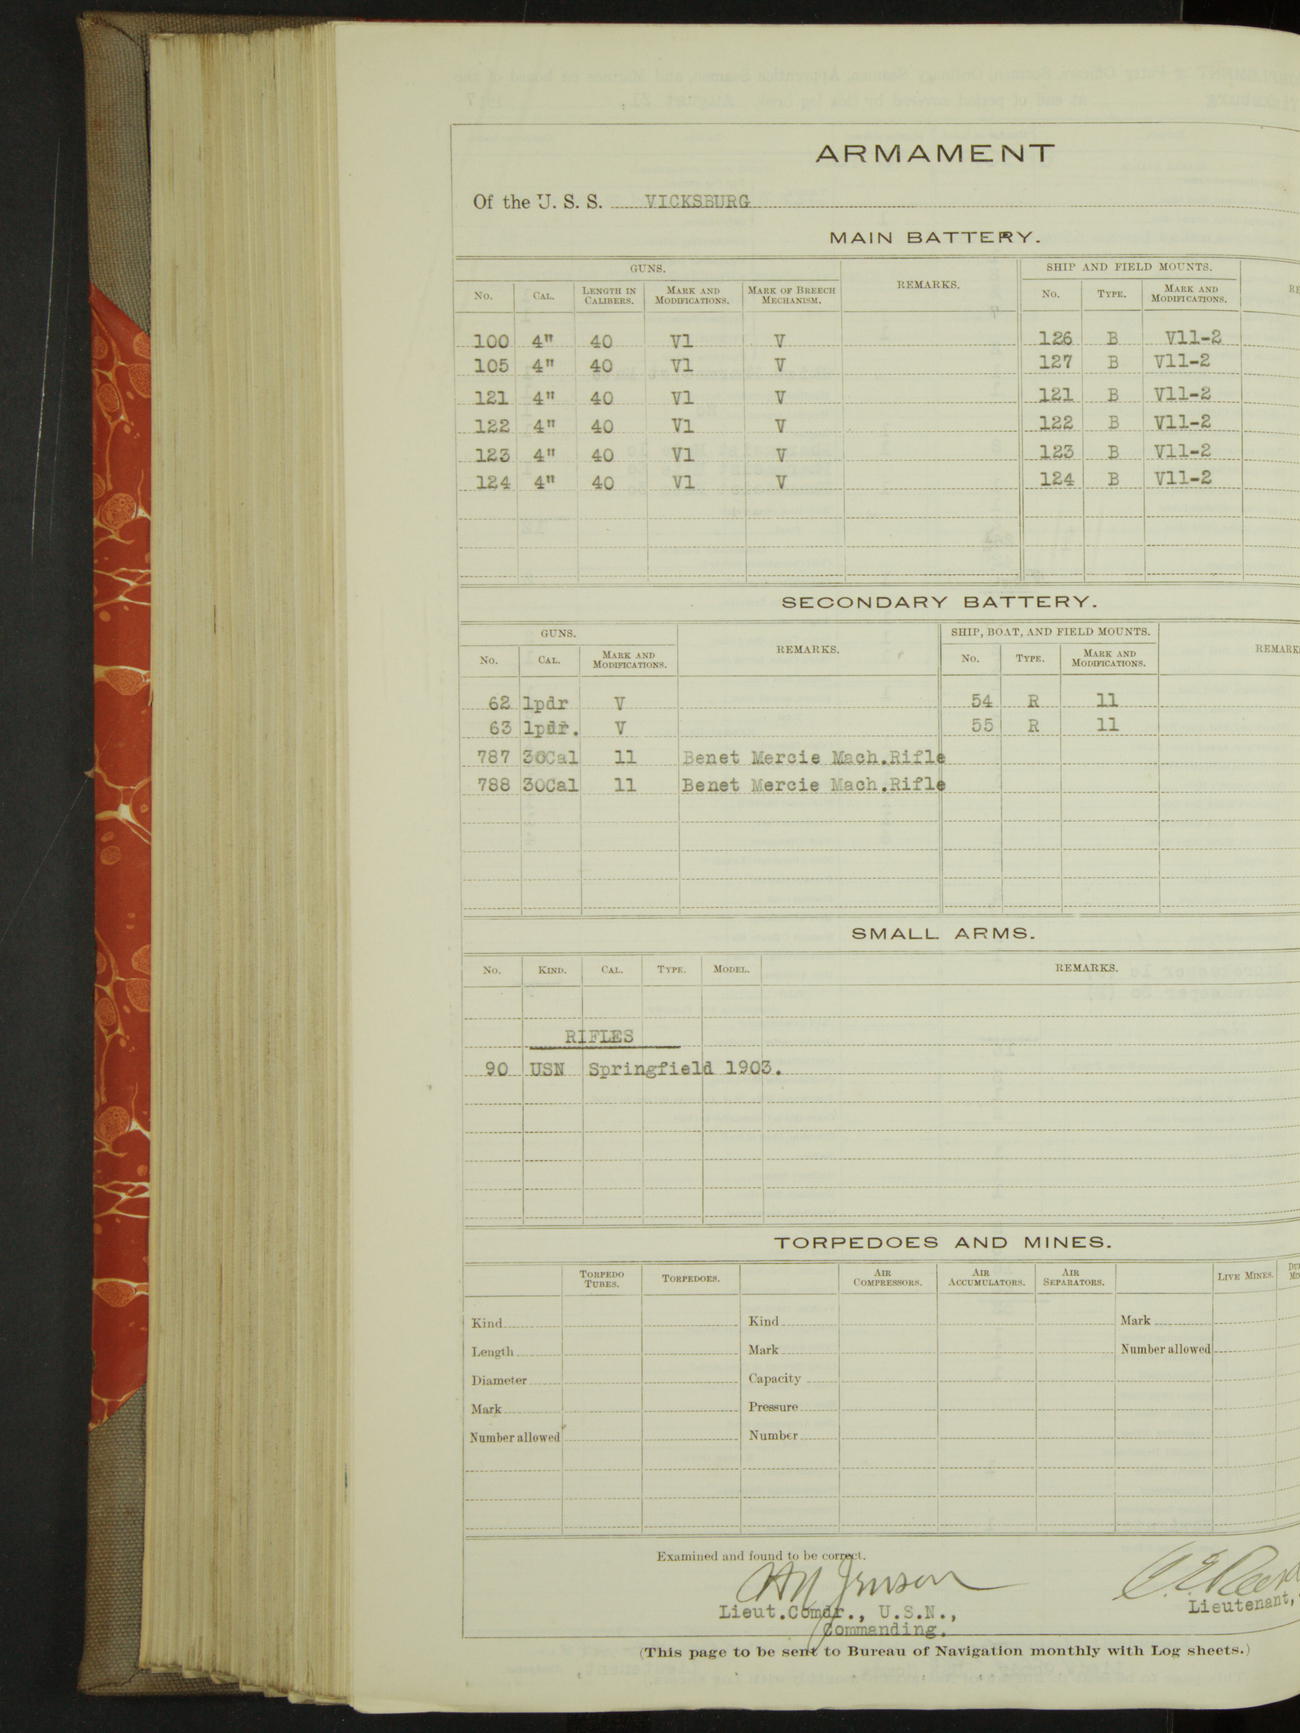 ARMAMENT
Of the U. S. S. VICKSBURG
MAIN BATTERY.
GUNS. REMARKS. SHIP AND FIELD MOUNTS.
No. CAL. LENGTH IN CALIBERS. MARK AND MODIFICATIONS. MARK OF BREECH MECHANISM. No. TYPE. MARK AND MODIFICATIONS.
100 4" 40 V1 V 126 B V11-2
105 4" 40 V1 V 127 B V11-2
121 4" 40 V1 V 121 B V11-2
122 4" 40 V1 V 122 B V11-2
123 4" 40 V1 V 123 B V11-2
124 4" 40 V1 V 124 B V11-2
SECONDARY BATTERY.
GUNS. REMARKS. SHIP, BOAT, AND FIELD MOUNTS. REMARKS
No. CAL. MARK AND MODIFICATIONS. No. TYPE. MARK AND MODIFICATIONS.
62 1pdr V 54 R 11
63 1pdr. V 55 R 11
787 30Cal 11 Benet Mercie Mach.Rifle
788 30Cal 11 Benet Mercie Mach.Rifle
SMALL ARMS.
No. KIND. CAL. TYPE. MODEL. REMARKS.
RIFLES
90 USN Springfield 1903.
TORPEDOES AND MINES.
TORPEDO TUBES. TORPEDOES. AIR COMPRESSORS. AIR ACCUMULATORS. AIR SEPARATORS. LIVE MINES.
Kind Kind Mark
Length Mark Number allowed
Diameter Capacity
Mark Pressure
Number allowed Number
Examined and found to be correct.
Lieut.Comdr., U.S.N., Lieutenant,
Commanding.
(This page to be sent to Bureau of Navigation monthly with Log sheets.)